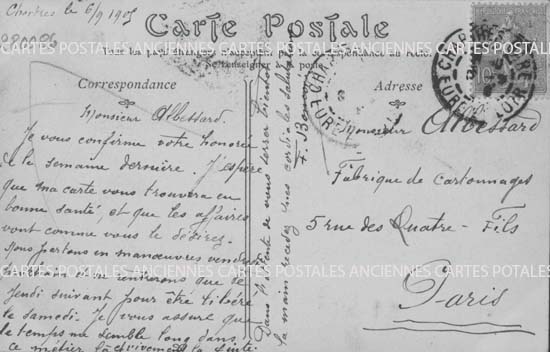 Chartres le 6/9 1905
Carte Postale
Tous les pays étrangers n'acceptent pas la correspondance au recto.
Se renseigner à la poste
Correspondance
Adresse
Monsieur Albessard
Je vous confirme votre honorée
de la semaine dernière. J'espère
que ma carte vous trouvera en
bonne santé, et que les affaires
vont comme vous le désirez.
Nous partons en manœuvres vendredi
rentrerons que le
Jeudi suivant pour être libéré
le samedi. Je vous assure que
le temps me semble long dans
ce métier là. vivement la suite.
Dans l'attente de vous serrer bientôt
la main recevez mes cordiales salutations
F. 
Monsieur Albessard
Fabrique de cartonnages
5 rue des Quatre-Fils
Paris
CHARTRES
EURE ET LOIR
10
CARTES POSTALES ANCIENNES CARTES POSTALES ANCIENNES CARTES POSTALES